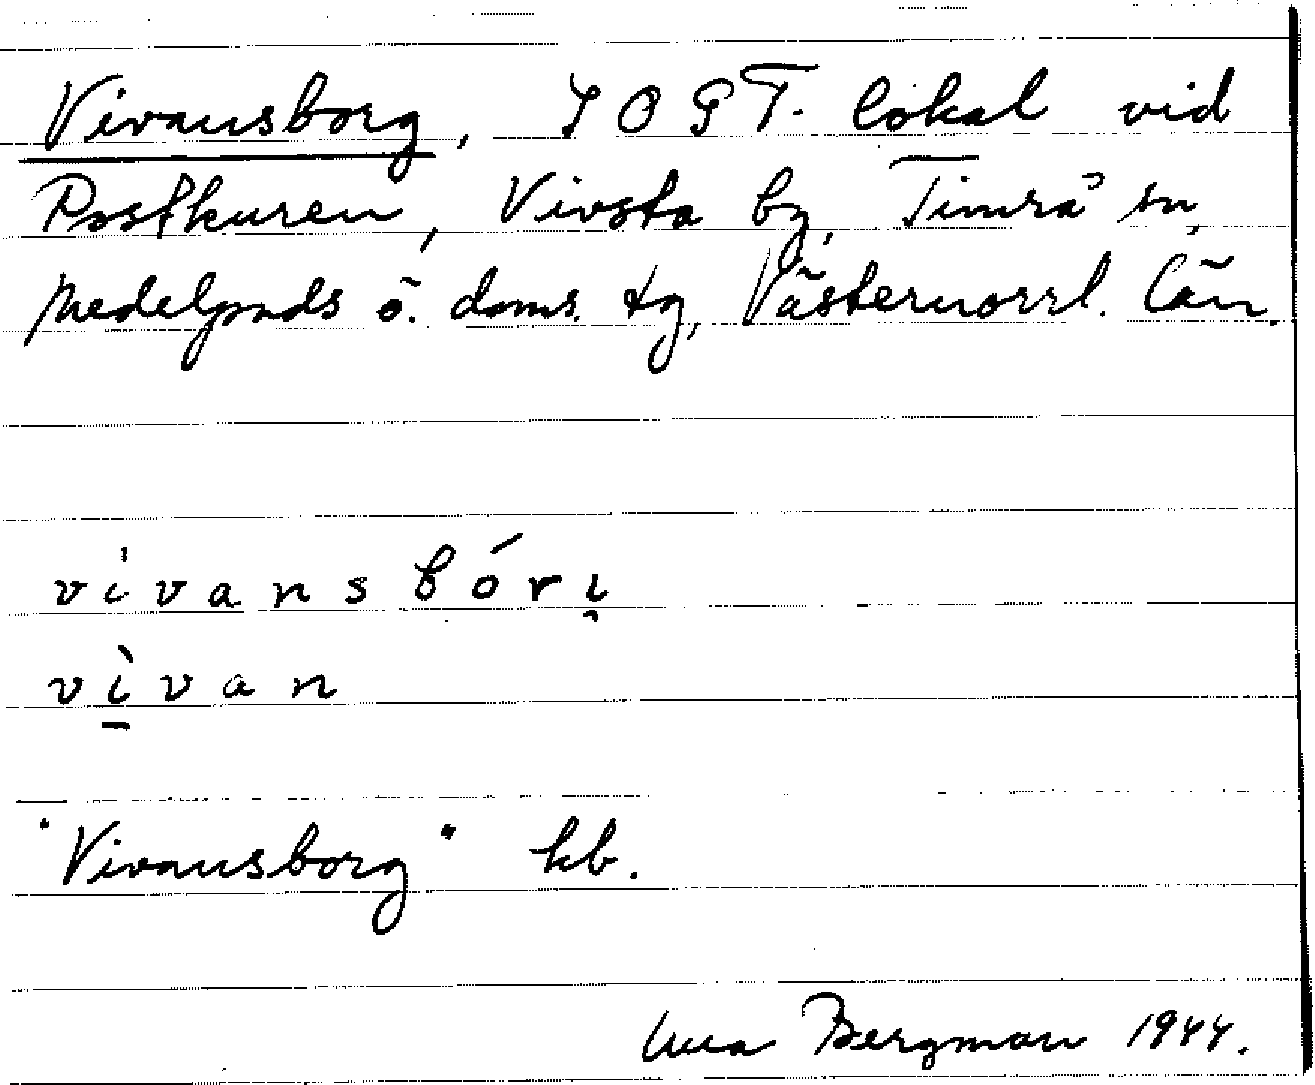 Vivansborg, IOGT. lokal vid
Postkuren, Vivsta by, Timrå sn,
Medelpads ö. doms. tg, Västernorrl. län.
vívansbóri̯
vìvan
"Vivansborg" kb.
Bergman 1944.